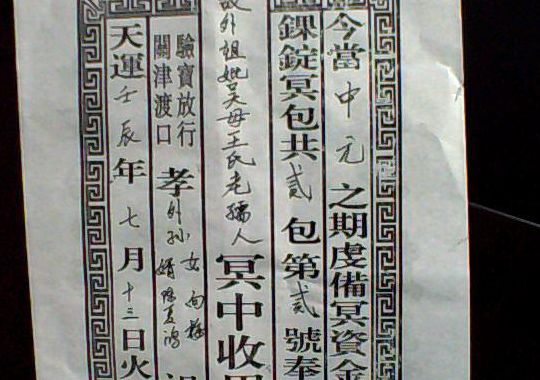 今當中元之期虔備冥資金
錁錠冥包共貳包第貳號奉
故外祖妣吴母王氏老孺人冥中收用
驗寶放行
關津渡口
孝外孫女
婿
天運壬辰年七月十三日火